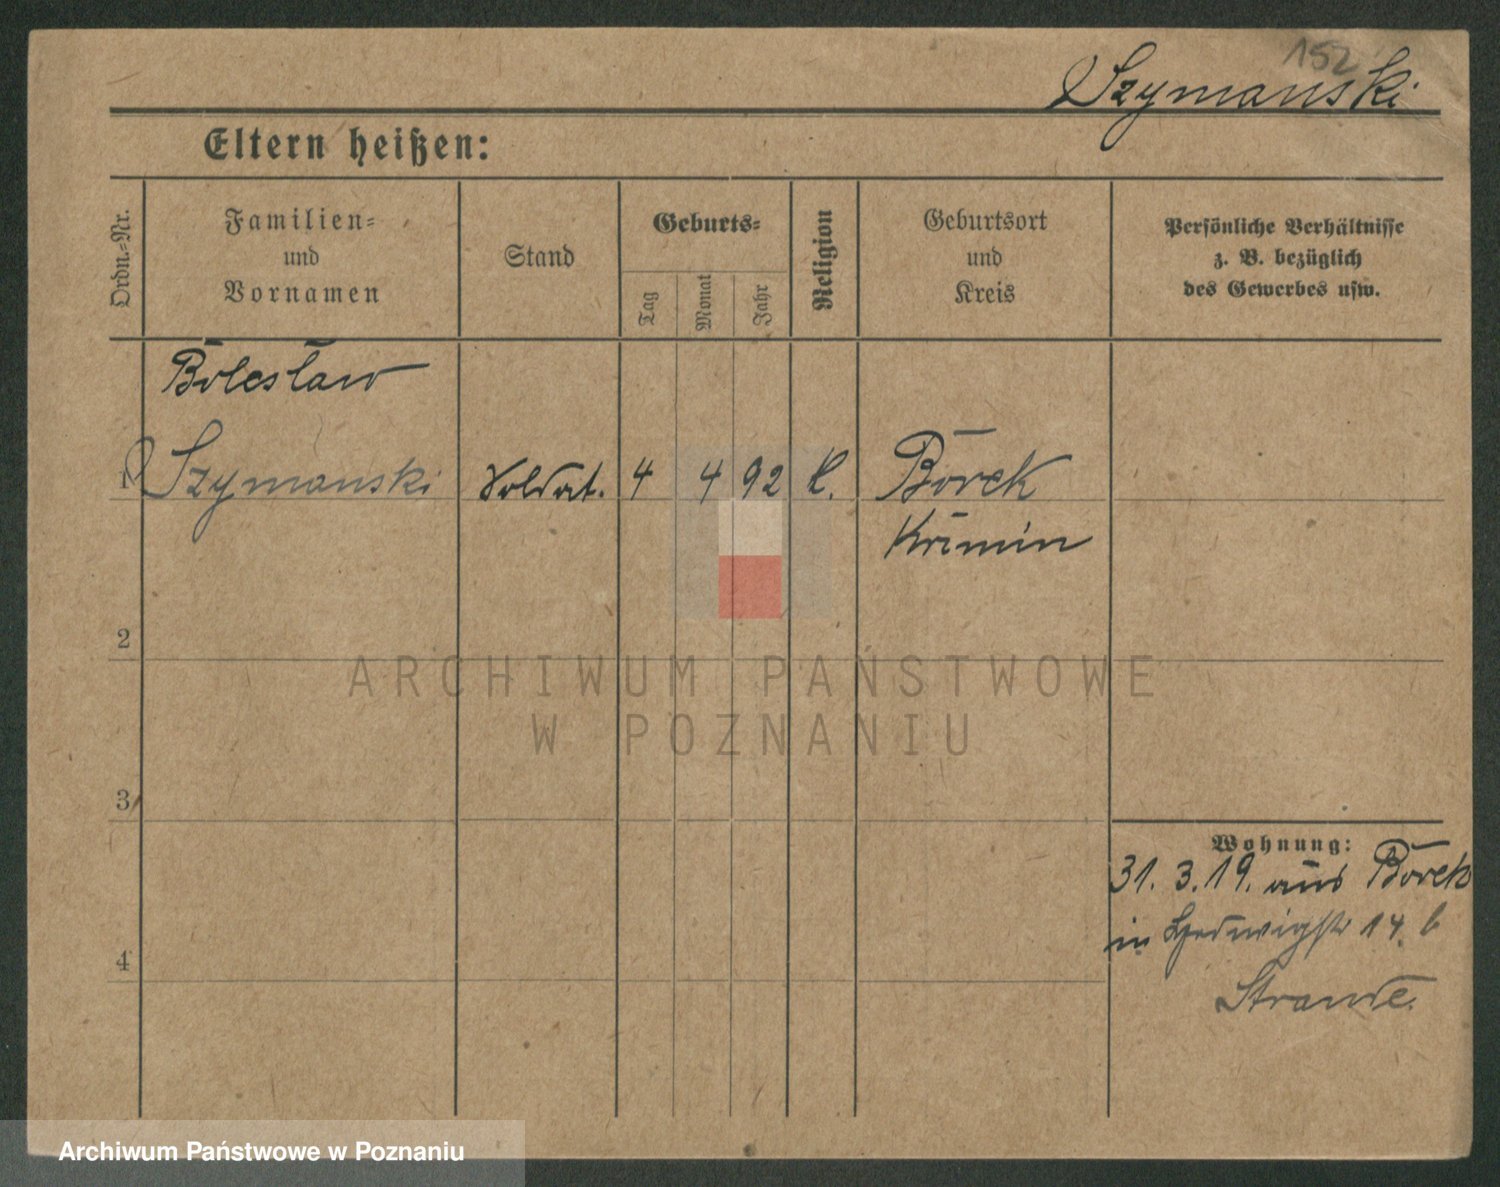 152
Szymanski
Eltern heißen:
Ordn.-Nr.
Familien-
und
Vornamen
Stand
Geburts-
Tag
Monat
Jahr
Religion
Geburtsort
und
Kreis
Persönliche Verhältnisse
z. B. bezüglich
des Gewerbes usw.
Bolesław
1 Szymanski Soldat. 4 4 92 k. Borek
2
3
4
Wohnung:
31. 3. 19. aus Borek
in Hedwigstr 14. b
ARCHIWUM PAŃSTWOWE
W POZNANIU
Archiwum Państwowe w Poznaniu